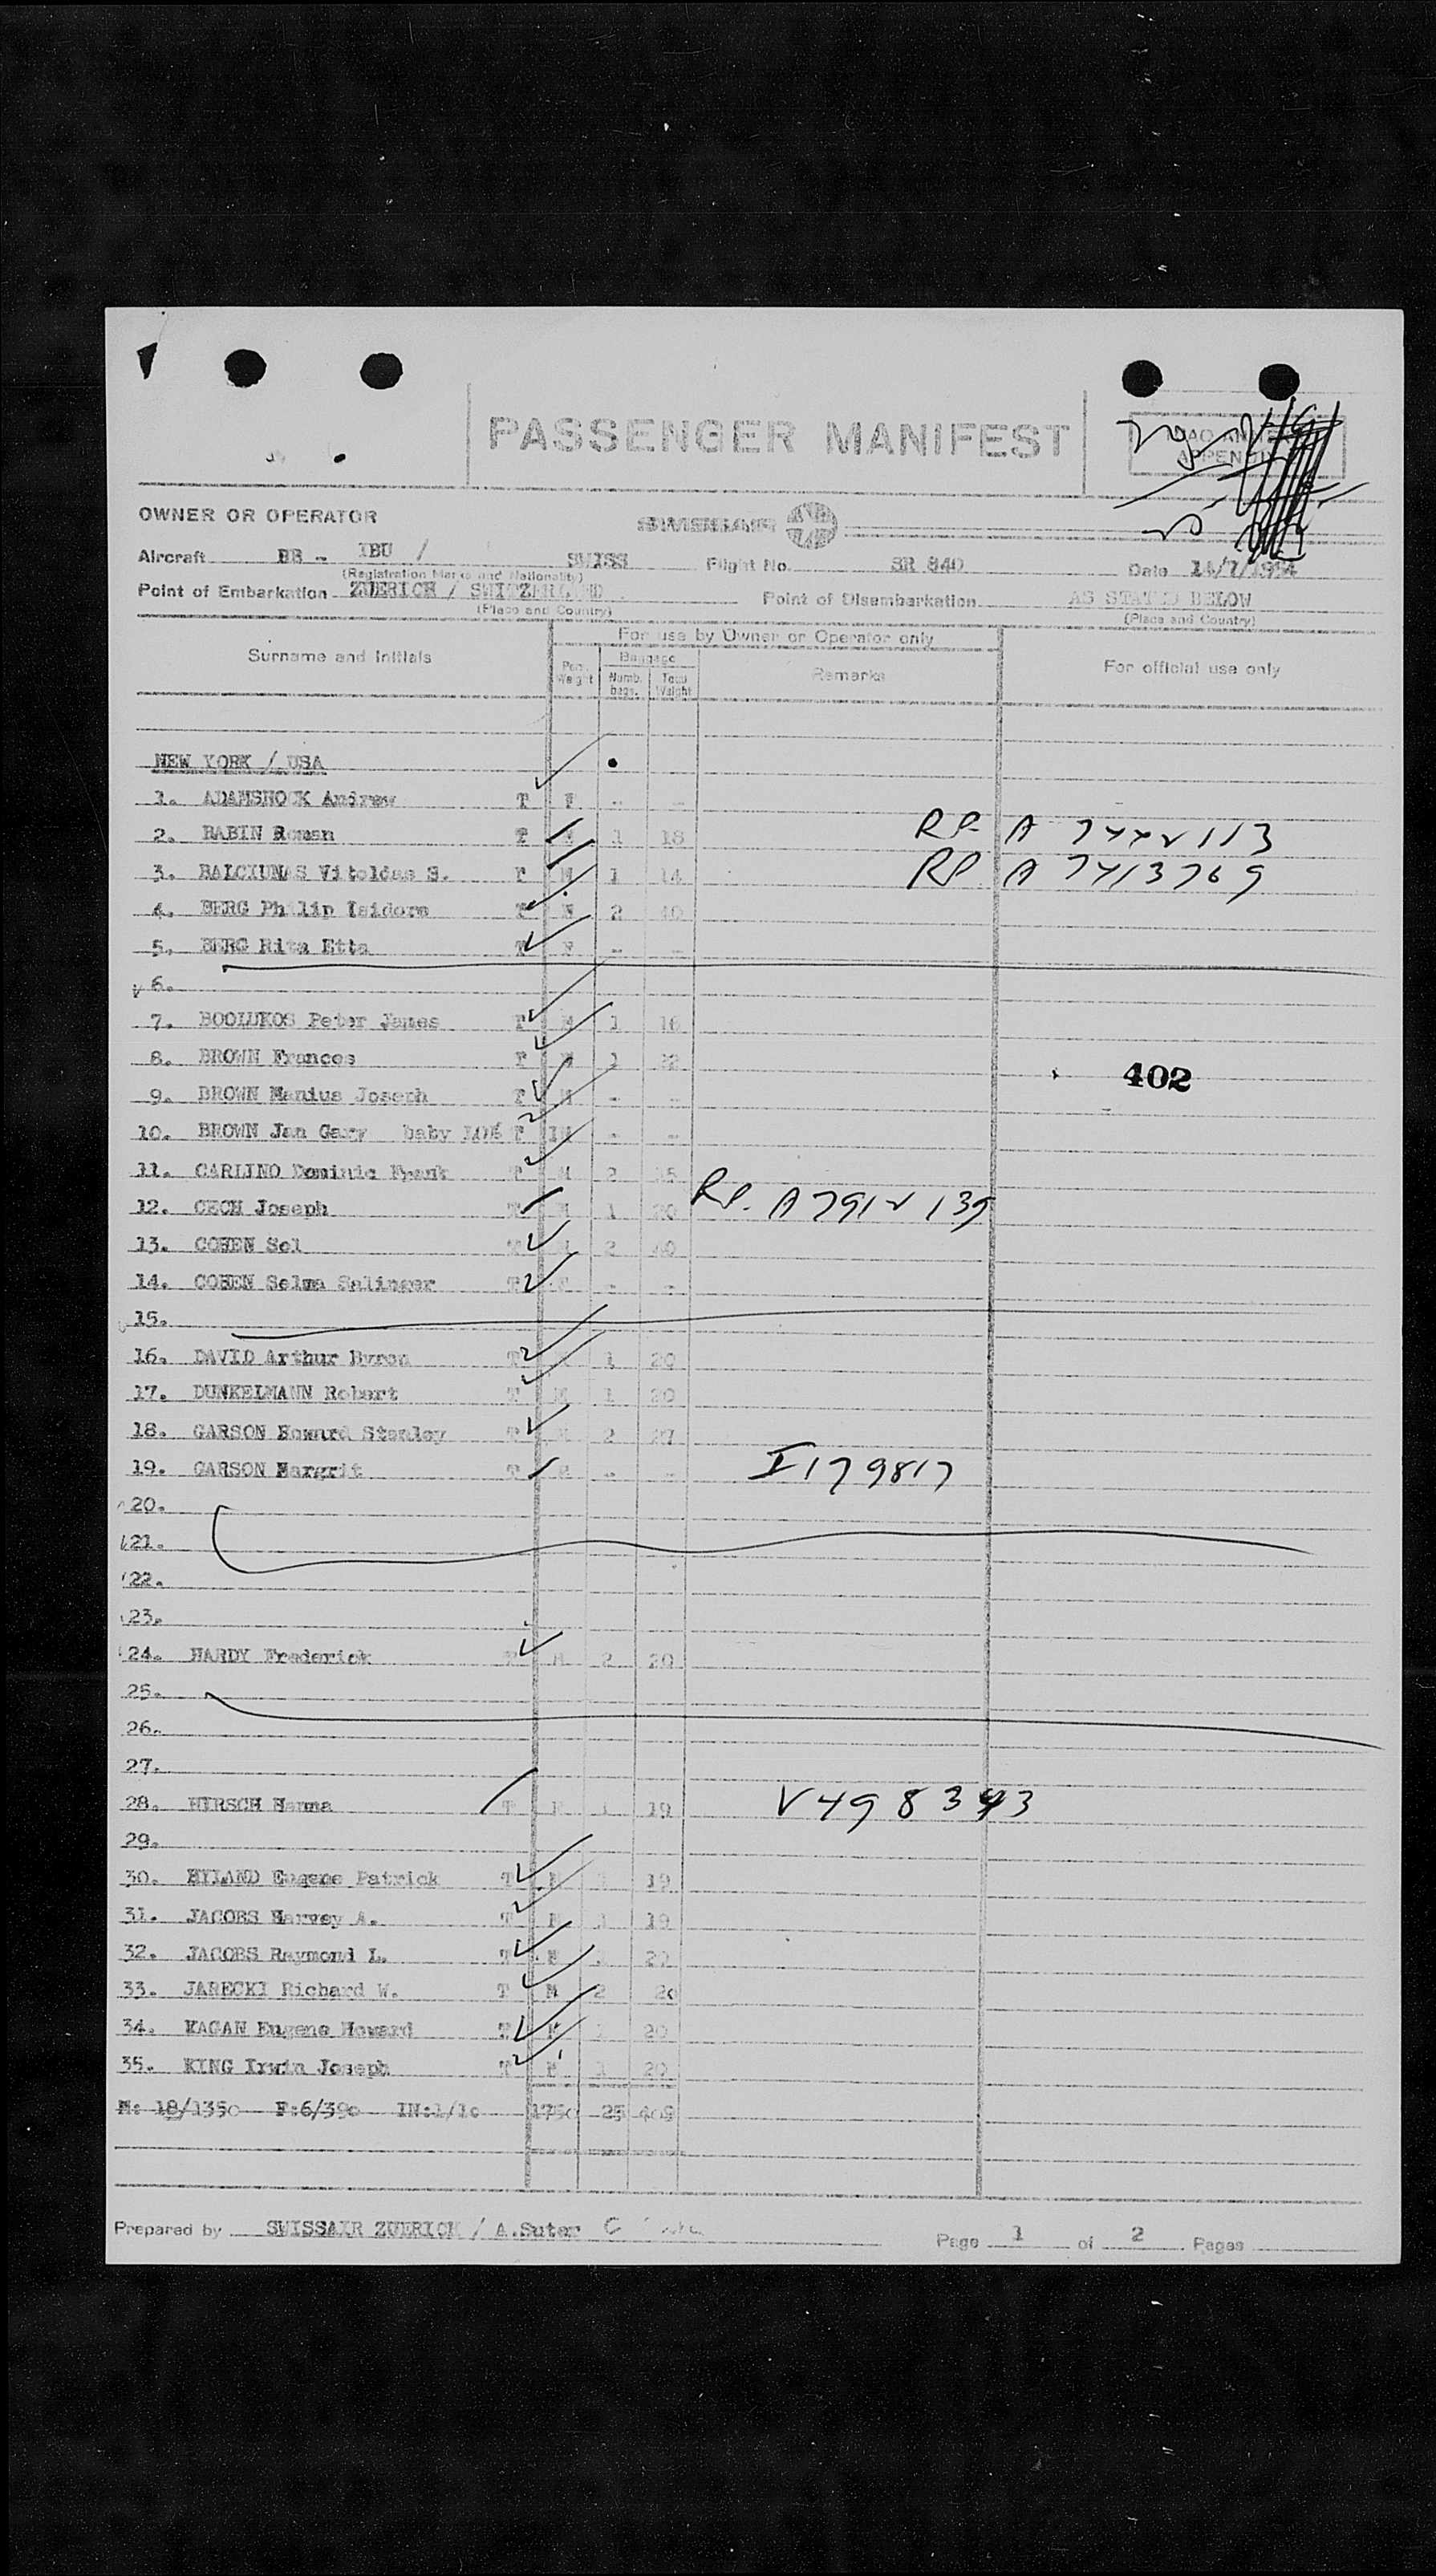 PASSENGER MANIFEST
APPENDIX
OWNER OR OPERATOR SWISSAIR
Aircraft IBU / SWISS Flight No. SR 840 Date 14/7/1954
(Registration Marks and Nationality)
Point of Embarkation ZUERICH / SWITZERLAND Point of Disembarkation AS STATED BELOW
(Place and Country) (Place and Country)
For use by Owner or Operator only
Surname and Initials Baggage Remarks For official use only
Weight Numb. bags. Weight
NEW YORK / USA
1. ADAMSHOCK Andrew T F - -
2. BABIN Roman T M 1 18 RP. A 7442113
3. BALCIUNAS Vitoldas S. T M 1 14 RP A 7413769
4. BERG Philip Isidore T M 2 40
5. BERG Rita Etta T F - -
6.
7. BOOLUKOS Peter James T M 1 16
8. BROWN Frances T 1
9. BROWN Manius Joseph T M - -
10. BROWN Jan Gary baby T IN - -
11. CARLINO Dominic Frank T M 2
12. CECH Joseph T M 1 20 RP. A7912139
13. COHEN Sol T 2 40
14. COHEN Selma Salinger T F - -
15.
16. DAVID Arthur Byron T 1 20
17. DUNKELMANN Robert T M 1 20
18. GARSON Howard Stanley T M 2 27
19. GARSON Margrit T F - - I179817
20.
21.
22.
23.
24. HARDY Frederick T M 2 20
25.
26.
27.
28. HIRSCH Hanna T F 1 19 V498343
29.
30. HYLAND Eugene Patrick T 19
31. JACOBS Harvey A. T 1 19
32. JACOBS Raymond L. T M 20
33. JARECKI Richard W. T M 2 20
34. KAGAN Eugene Howard T M 1 20
35. KING Irwin Joseph T M 1 20
M: 18/1350 F:6/390 IN:1/10 1750 25 409
402
Prepared by SWISSAIR ZUERICH / A.Suter Page 1 of 2 Pages